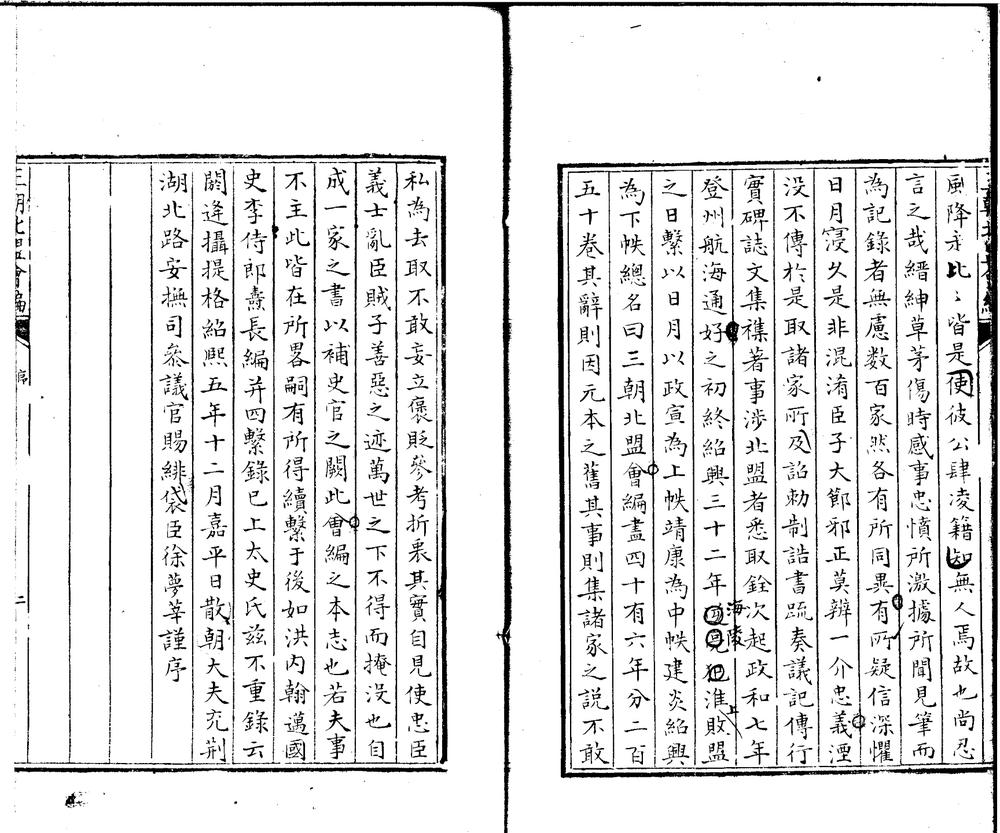 風降我比比皆是使彼公肆凌籍知無人焉故也尚忍
言之哉縉紳草茅傷時感事忠憤所激據所聞見筆而
為記錄者無慮数百家然各有所同異有所疑信深懼
日月寖久是非混淆臣子大節邪正莫辨一介忠義湮
没不傳於是取諸家所及詔勅制誥書疏奏議記傳行
實碑誌文集襍著事涉北盟者悉取銓次起政和七年
登州航海通好之初終紹興三十二年海陵犯淮敗盟
之日繫以日月以政宣為上帙靖康為中帙建炎紹興
為下帙總名曰三朝北盟會編盡四十有六年分二百
五十卷其辭則因元本之舊其事則集諸家之説不敢
私為去取不敢妄立褒貶參考折衷其實自見使忠臣
義士亂臣賊子善惡之迹萬世之下不得而掩没也自
成一家之書以補史官之闕此會編之本志也若夫事
不主此皆在所畧嗣有所得續繫于後如洪内翰邁國
史李侍郎燾長編并四繫錄已上太史氏兹不重錄云
閼逢攝提格紹熙五年十二月嘉平日散朝大夫充荆
湖北路安撫司叅議官賜緋袋臣徐夢莘謹序
三朝北盟會編
序
二